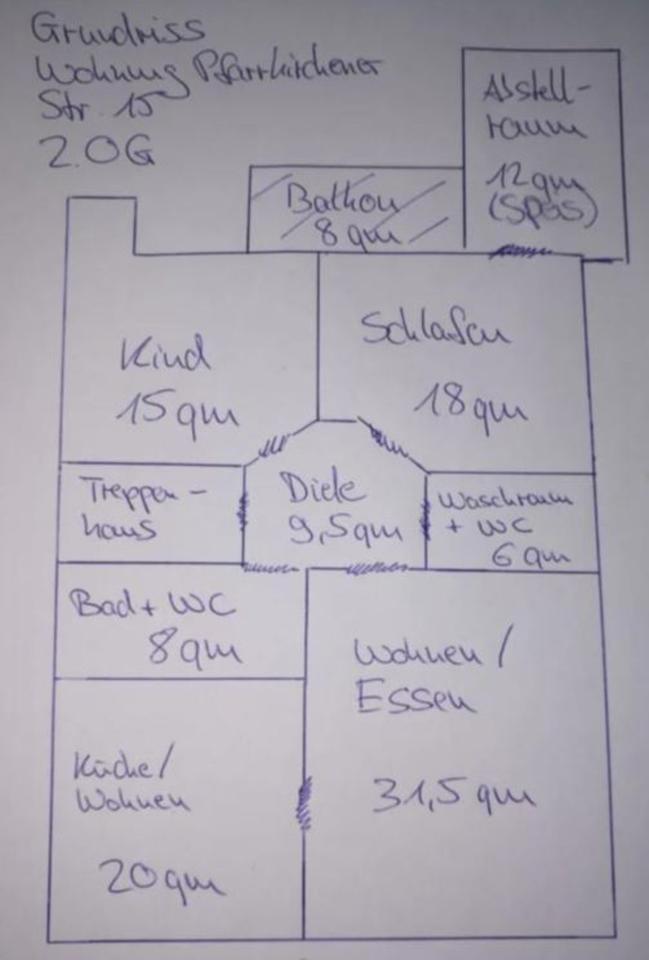 Grundriss
Wohnung Pfarrkirchener
Str. 15
2.OG
Abstell-
raum
12qm
(Spos)
Balkon
8qm
Kind
15qm
Schlafen
18qm
Treppen-
haus
Diele
9,5qm
Waschraum
+ WC
6qm
Bad + WC
8qm
Wohnen /
Essen
31,5qm
Küche/
Wohnen
20qm